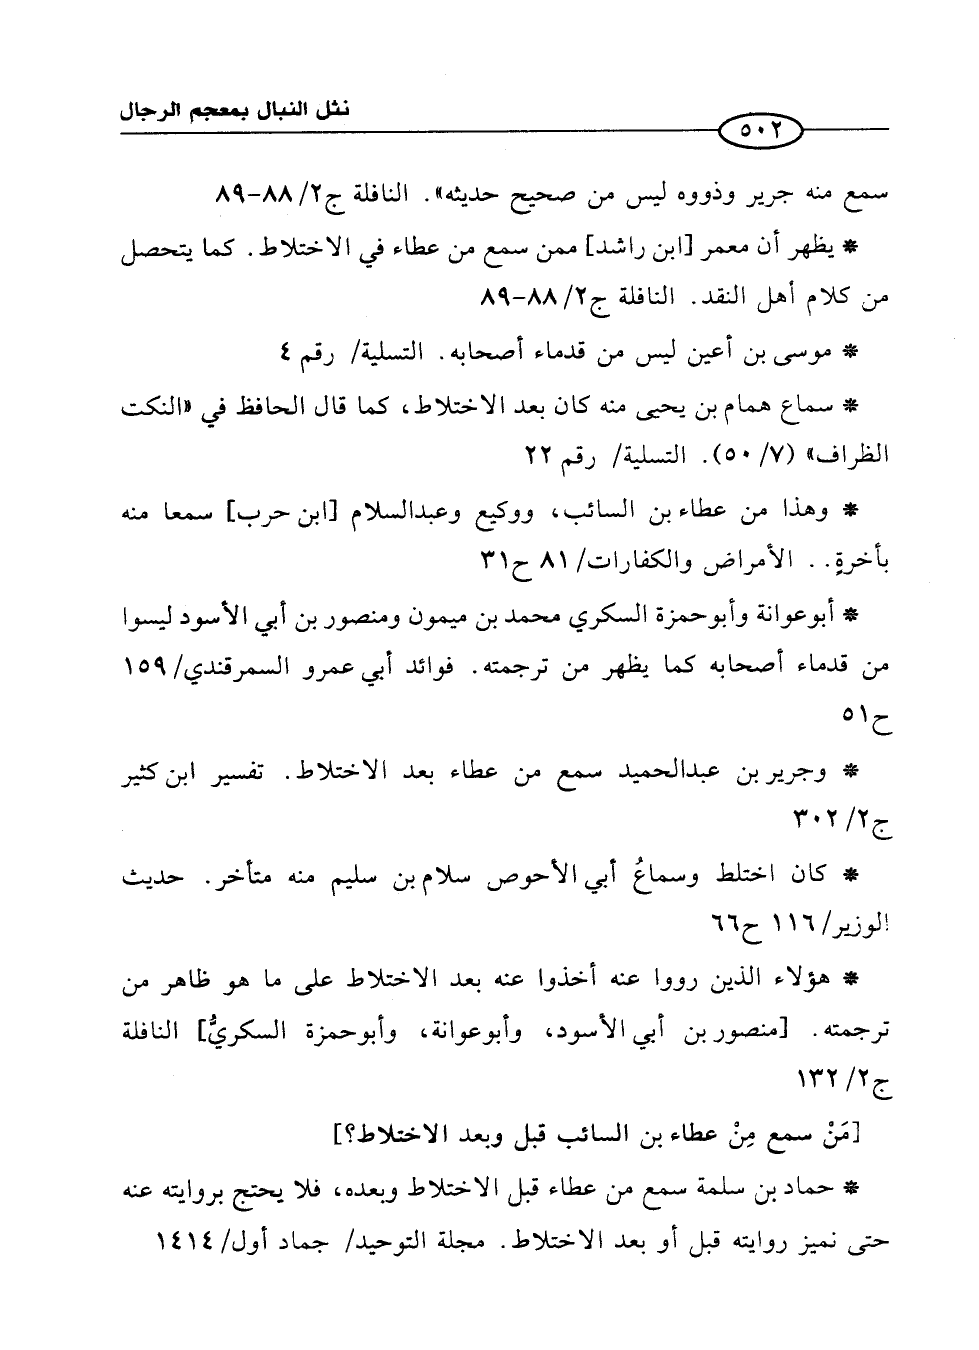 نثل النبال بمعجم الرجال
٥٠٢
سمع منه جرير وذووه ليس من صحيح حديثه». النافلة ج٢/ ٨٨-٨٩
* يظهر أن معمر [ابن راشد] ممن سمع من عطاء في الاختلاط. كما يتحصل
من كلام أهل النقد. النافلة ج٢/ ٨٨-٨٩
* موسى بن أعين ليس من قدماء أصحابه. التسلية/ رقم ٤
* سماع همام بن يحيى منه كان بعد الاختلاط، كما قال الحافظ في «النكت
الظراف» (٧/ ٥٠). التسلية/ رقم ٢٢
* وهذا من عطاء بن السائب، ووكيع وعبدالسلام [ابن حرب] سمعا منه
بأخرةٍ.. الأمراض والكفارات/ ٨١ ح٣١
* أبو عوانة وأبو حمزة السكري محمد بن ميمون ومنصور بن أبي الأسود ليسوا
من قدماء أصحابه كما يظهر من ترجمته. فوائد أبي عمرو السمرقندي/ ١٥٩
ح٥١
* وجرير بن عبدالحميد سمع من عطاء بعد الاختلاط. تفسير ابن كثير
ج٢/ ٣٠٢
* كان اختلط وسماعُ أبي الأحوص سلام بن سليم منه متأخر. حديث
الوزير/ ١١٦ ح٦٦
* هؤلاء الذين رووا عنه أخذوا عنه بعد الاختلاط على ما هو ظاهر من
ترجمته. [منصور بن أبي الأسود، وأبو عوانة، وأبو حمزة السكريُّ] النافلة
ج٢/ ١٣٢
[مَنْ سمع مِنْ عطاء بن السائب قبل وبعد الاختلاط؟]
* حماد بن سلمة سمع من عطاء قبل الاختلاط وبعده، فلا يحتج بروايته عنه
حتى نميز روايته قبل أو بعد الاختلاط. مجلة التوحيد/ جماد أول/ ١٤١٤